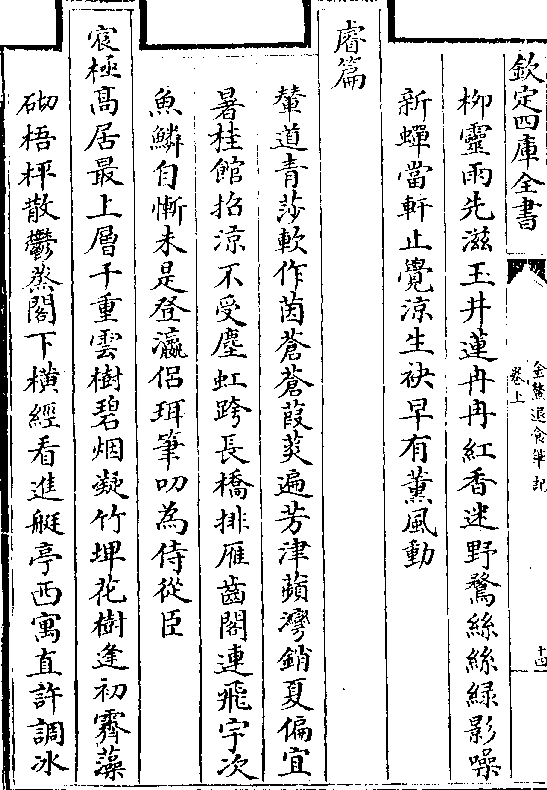 欽定四庫全書
金鰲退食筆記
卷上
十四
柳靈雨先滋玉井蓮冉冉紅香迷野鶩絲絲緑影噪
新蟬當軒止覺涼生袂早有薫風動
睿篇
輦道青莎軟作茵蒼蒼葭菼遍芳津蘋灣銷夏偏宜
暑桂館招涼不受塵虹跨長橋排雁齒閣連飛宇次
魚鱗自慚未是登瀛侣珥筆叨為侍從臣
宸極髙居最上層千重雲樹碧烟凝竹埤花樹逢初霽藻
砌梧枰散鬱蒸閣下横經看進艇亭西寓直許調冰